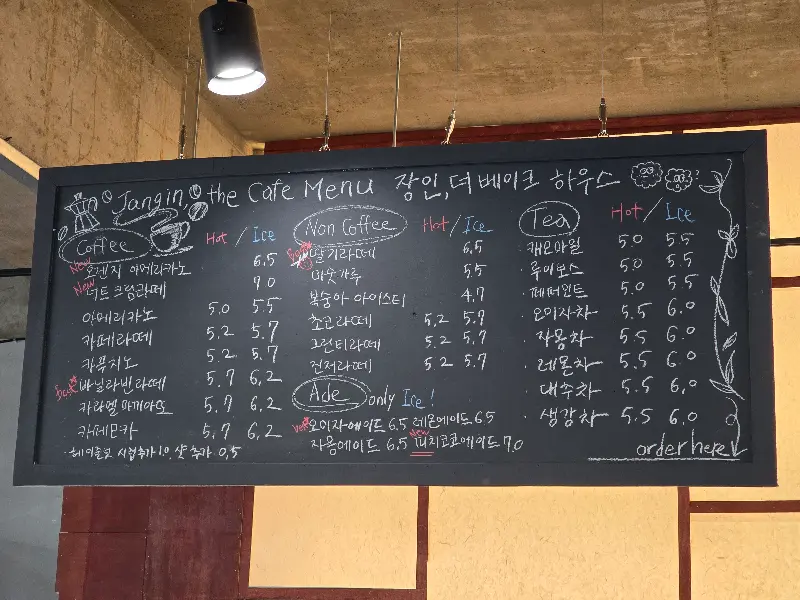 Jangin, the Cafe Menu 장인, 더 베이크 하우스
Coffee Hot / Ice
New 오렌지 아메리카노 6.5
New 넛트 크림라떼 7.0
아메리카노 5.0 5.5
카페라떼 5.2 5.7
카푸치노 5.2 5.7
best 바닐라빈라떼 5.7 6.2
카라멜 마끼아또 5.7 6.2
카페모카 5.7 6.2
· 헤이즐넛 시럽추가 1.0, 샷 추가 0.5
Non Coffee Hot / Ice
딸기라떼 6.5
미숫가루 5.5
복숭아 아이스티 4.7
초코라떼 5.2 5.7
그린티라떼 5.2 5.7
고구마라떼 5.2 5.7
Ade only Ice!
오미자에이드 6.5 레몬에이드 6.5
자몽에이드 6.5 New 피치코코에이드 7.0
Tea Hot / Ice
· 캐모마일 5.0 5.5
· 루이보스 5.0 5.5
· 페퍼민트 5.0 5.5
· 오미자차 5.5 6.0
· 자몽차 5.5 6.0
· 레몬차 5.5 6.0
· 대추차 5.5 6.0
· 생강차 5.5 6.0
order here